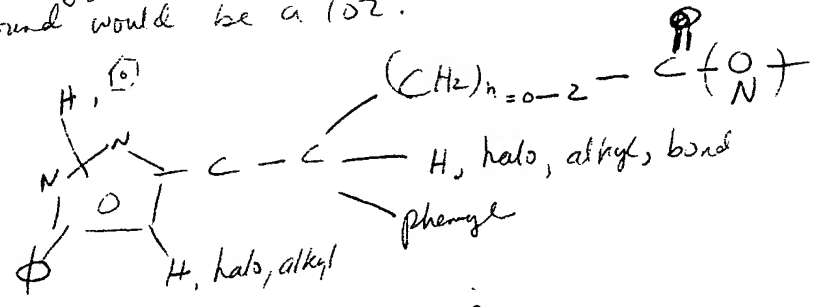 would be a 102.
(CH2)n=0-2 — C(O
N)
H,
N N
C — C — H, halo, alkyl, bond
phenyl
ϕ H, halo, alkyl